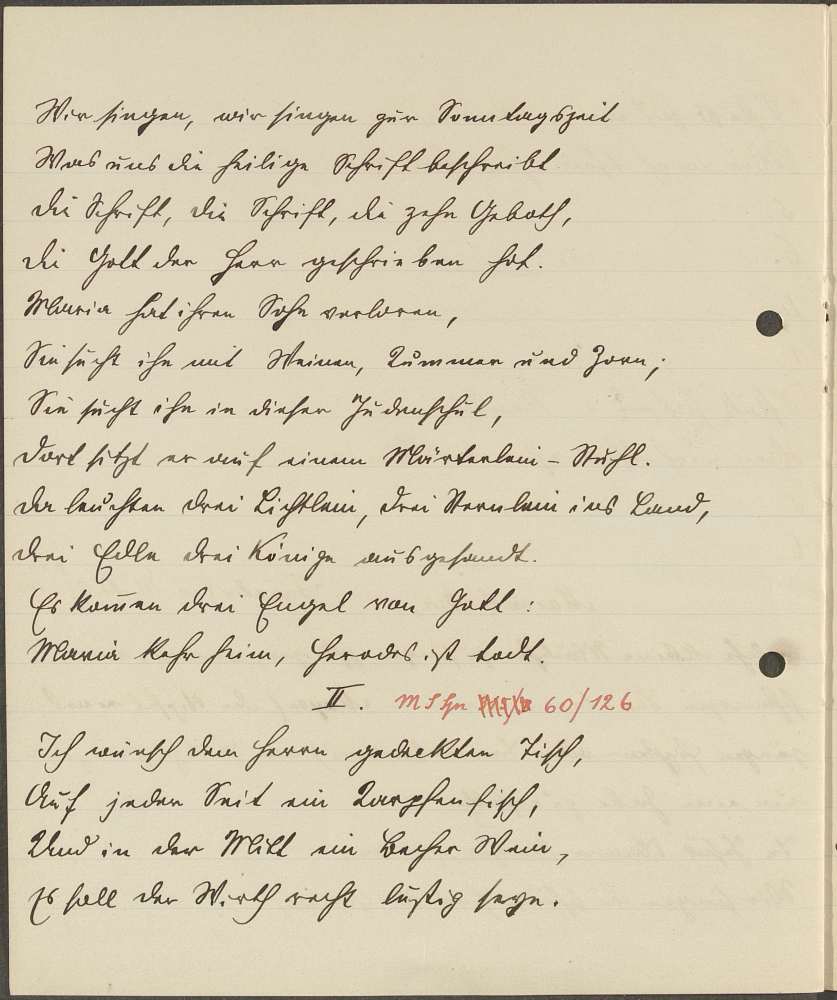 Wir singen, wir singen zur Sonntagszeit
Was uns die heilige Schrift beschreibt
die Schrift, die Schrift, die zehn Geboth,
die Gott der Herr geschrieben hat.
Maria hat ihren Sohn verloren,
Sie sucht ihn mit Weinen, Kummer und Zorn;
Sie sucht ihn in dieser Judenschul,
dort sitzt er auf einem Märterlein-Stuhl.
da leuchten drei Lichtlein, drei Sternlein ins Land,
drei Edle drei Könige ausgesandt.
Es kom̄en drei Engel von Gott:
Maria kehr heim, Herodes ist todt.
II. 60/126
Ich wünsch dem Herrn gedeckten Tisch,
Auf jeder Seit ein Karpfenfisch,
Und in der Mitt ein Becher Wein,
Es soll der Wirth recht lustig seyn.